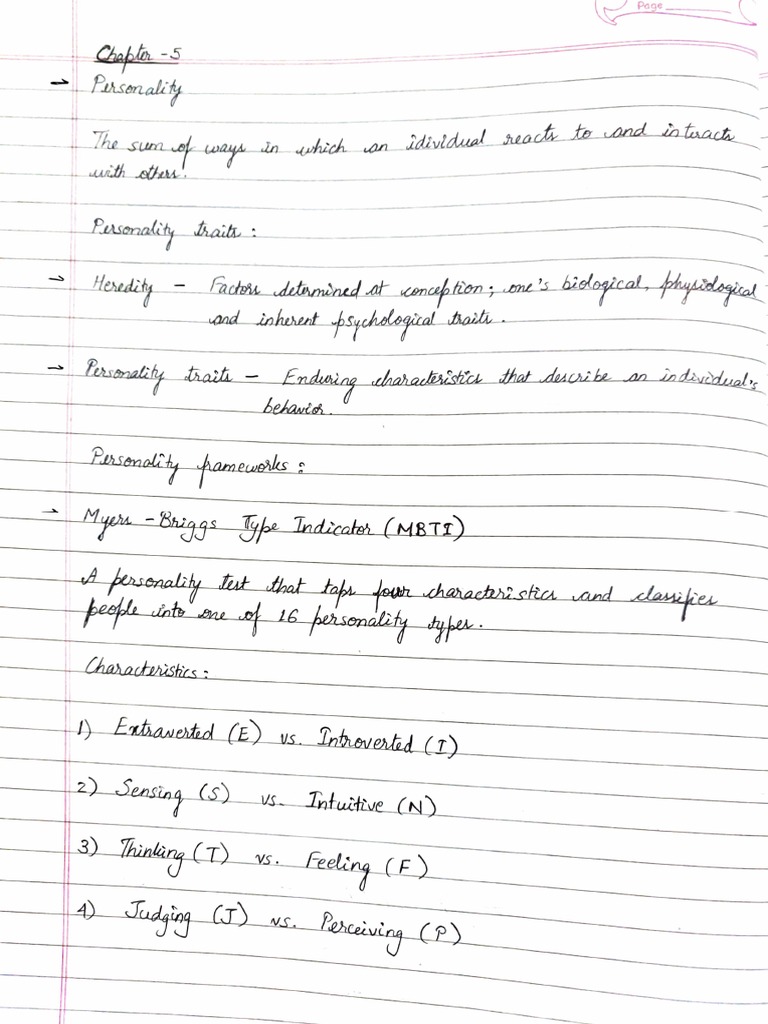 Page
Chapter -5
→ Personality
The sum of ways in which an idividual reacts to and interacts
with others.
Personality traits :
→ Heredity - Factors determined at conception; one's biological, physiological
and inherent psychological traits.
→ Personality traits - Enduring characteristics that describe an individual's
behavior.
Personality frameworks :
→ Myers - Briggs Type Indicator (MBTI)
A personality test that taps four characteristics and classifies
people into one of 16 personality types.
Characteristics :
1) Extraverted (E) vs. Introverted (I)
2) Sensing (S) vs. Intuitive (N)
3) Thinking (T) vs. Feeling (F)
4) Judging (J) vs. Perceiving (P)